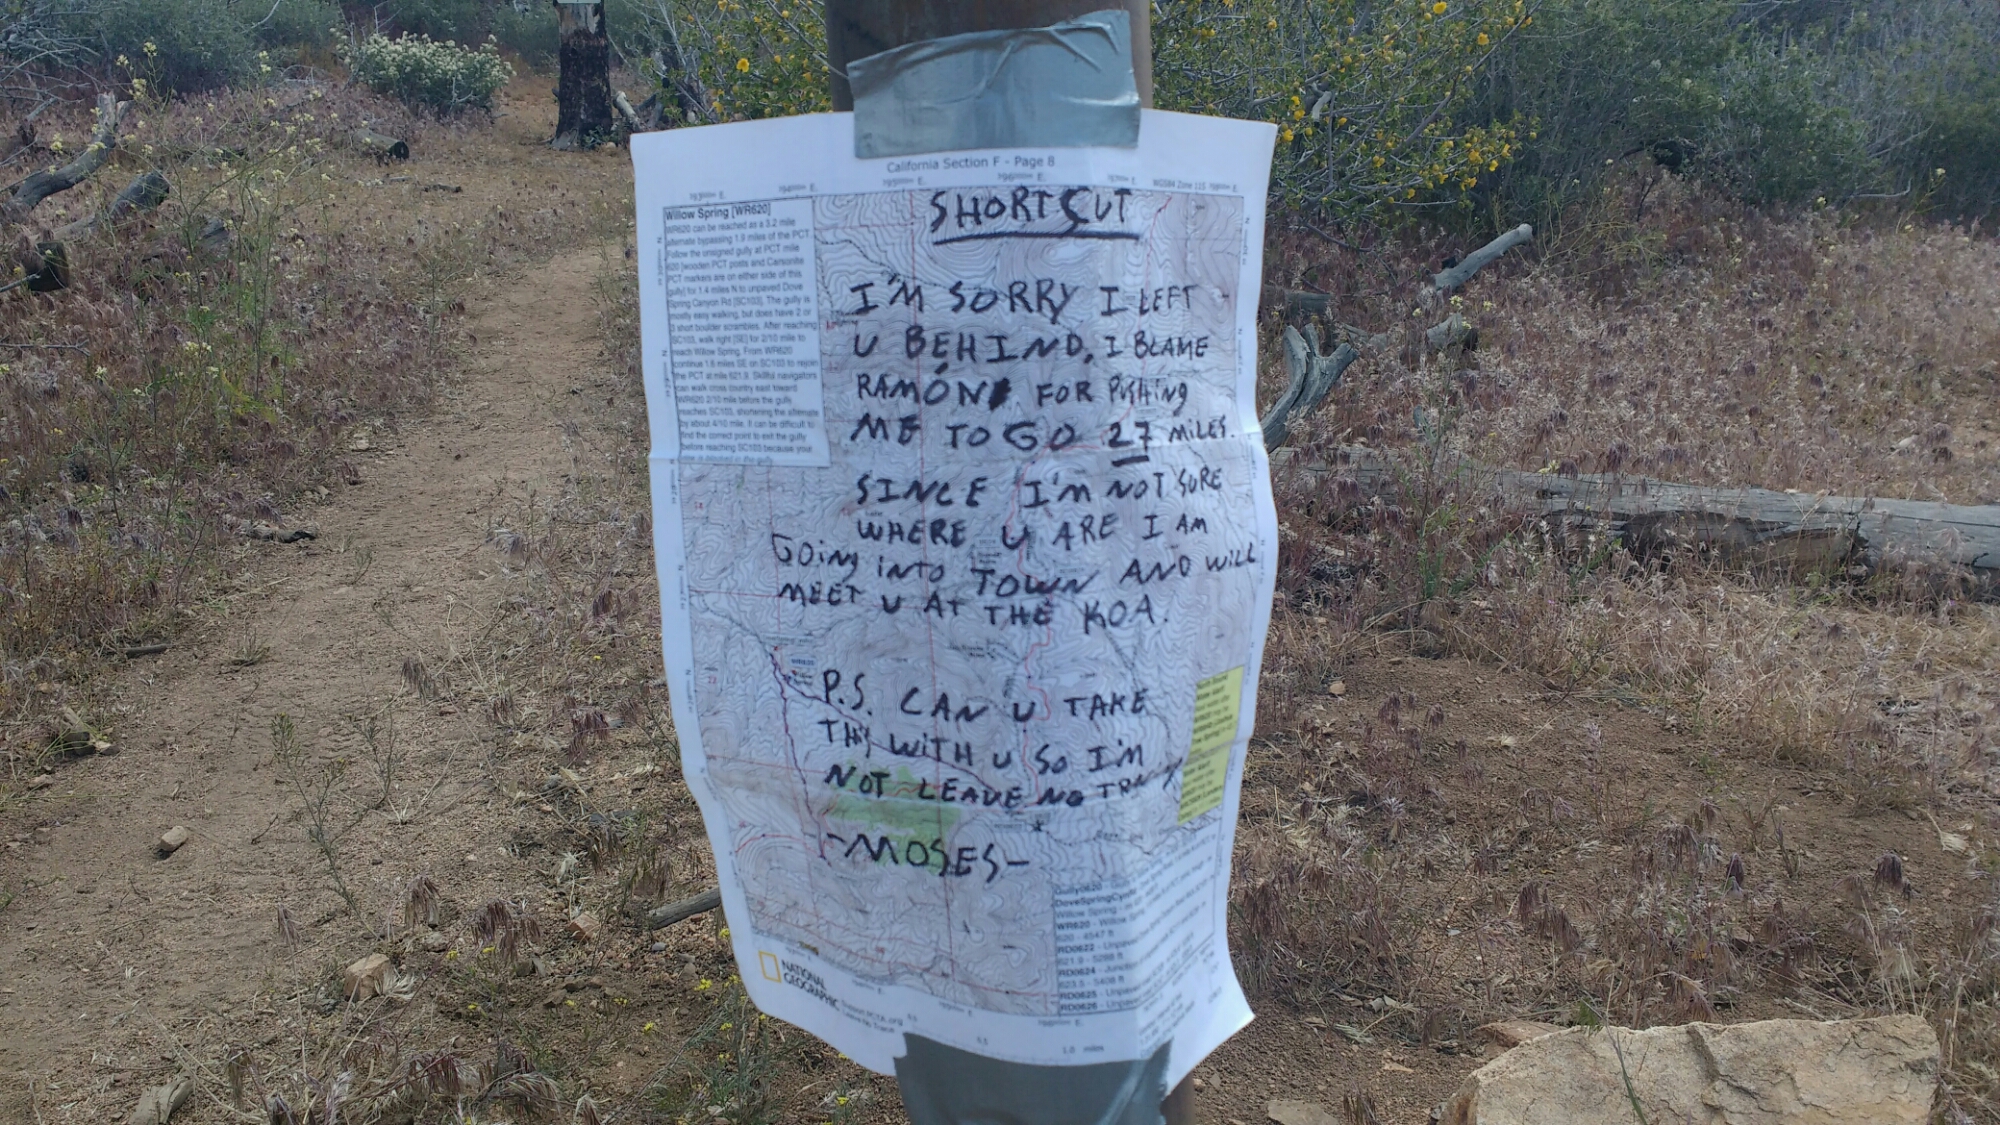 California Section F - Page 8
Willow Spring [WR620]
WR620 can be reached as a 3.2 mile
alternate bypassing 1.9 miles of the PCT.
Follow the unsigned gully at PCT mile
620 [wooden PCT posts and Carsonite
PCT markers are on either side of this
gully] for 1.4 miles N to unpaved Dove
Spring Canyon Rd [SC103]. The gully is
mostly easy walking, but does have 2 or
3 short boulder scrambles. After reaching
SC103, walk right [SE] for 2/10 mile to
reach Willow Spring. From WR620
continue 1.6 miles SE on SC103 to rejoin
the PCT at mile 621.9. Skillful navigators
can walk cross country east toward
WR620 2/10 mile before the gully
reaches SC103, shortening the alternate
by about 4/10 mile. It can be difficult to
find the correct point to exit the gully
before reaching SC103 because your
SHORTCUT
I'M SORRY I LEFT
U BEHIND, I BLAME
RAMÓN FOR PUSHING
ME TO GO 27 MILES.
SINCE I'M NOT SURE
WHERE U ARE I AM
GOING INTO TOWN AND WILL
MEET U AT THE KOA.
P.S. CAN U TAKE
THIS WITH U SO I'M
NOT LEAVE NO
-MOSES-
DoveSpringCyn
Willow Spring
WR620 - Willow Spring
620 - 4547 ft
RD0622 - Unpaved
621.9 - 5288 ft
RD0624 - Junction
623.5 - 5408 ft
RD0625 - Unpaved
RD0626 - Unpaved
NATIONAL
GEOGRAPHIC
Leave No Trace
1.0 miles